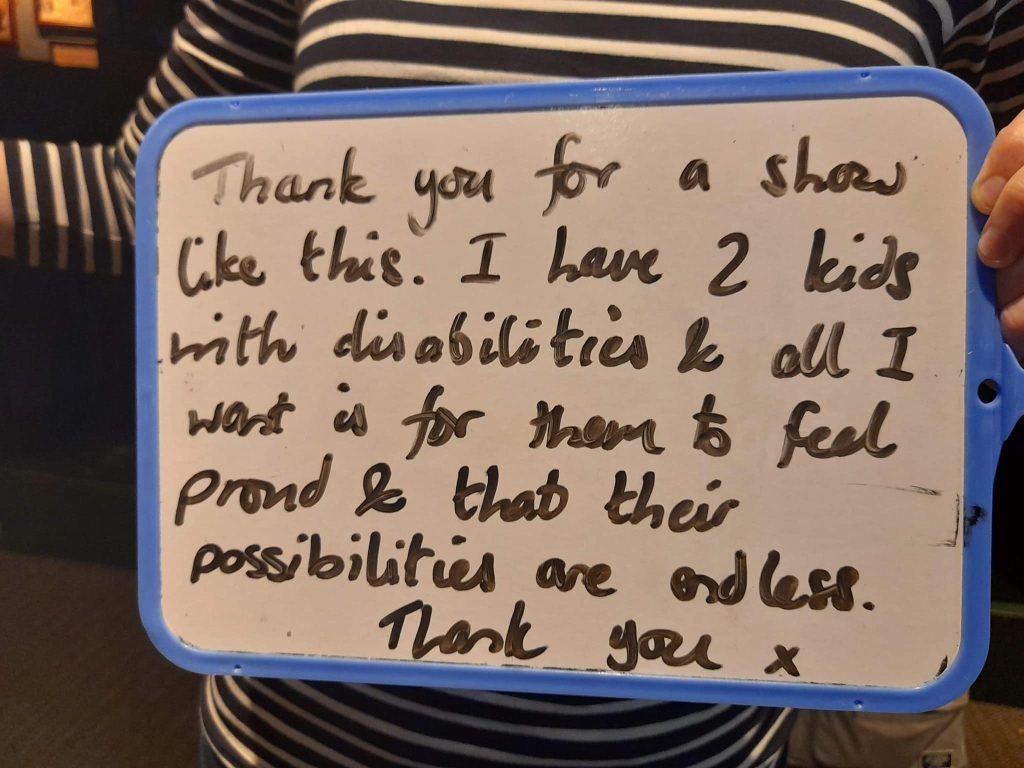 Thank you for a show
like this. I have 2 kids
with disabilities & all I
want is for them to feel
proud & that their
possibilities are endless.
Thank you x